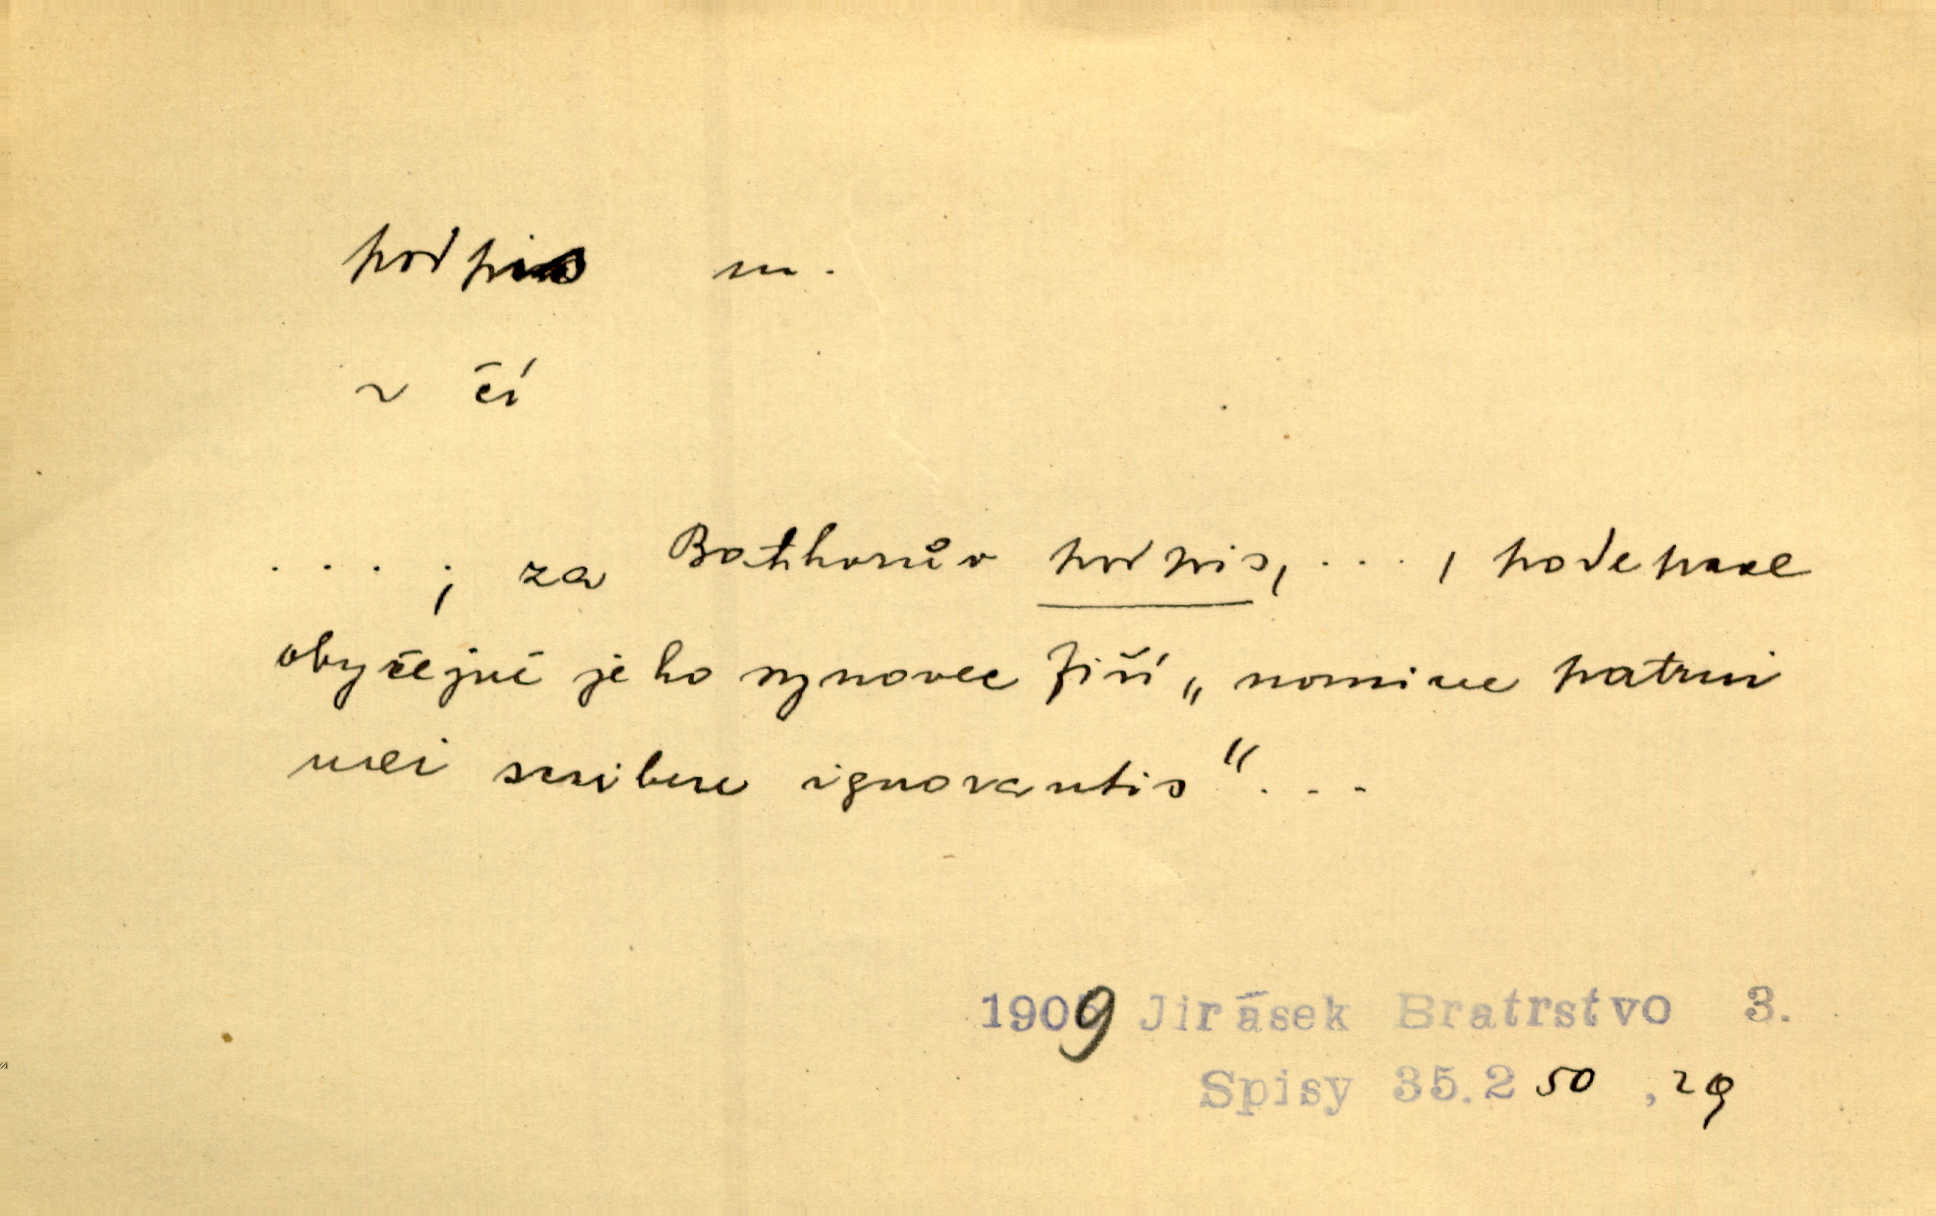 podpis m.
~ čí
. . . . ; za Bathorův podpis, . . . , podepsal
obyčejně jeho synovec Jiří „nomine patrui
mei scribere ignorantis“. . .
1909 Jirásek Bratrstvo 3.
Spisy 35.2 50 , 29